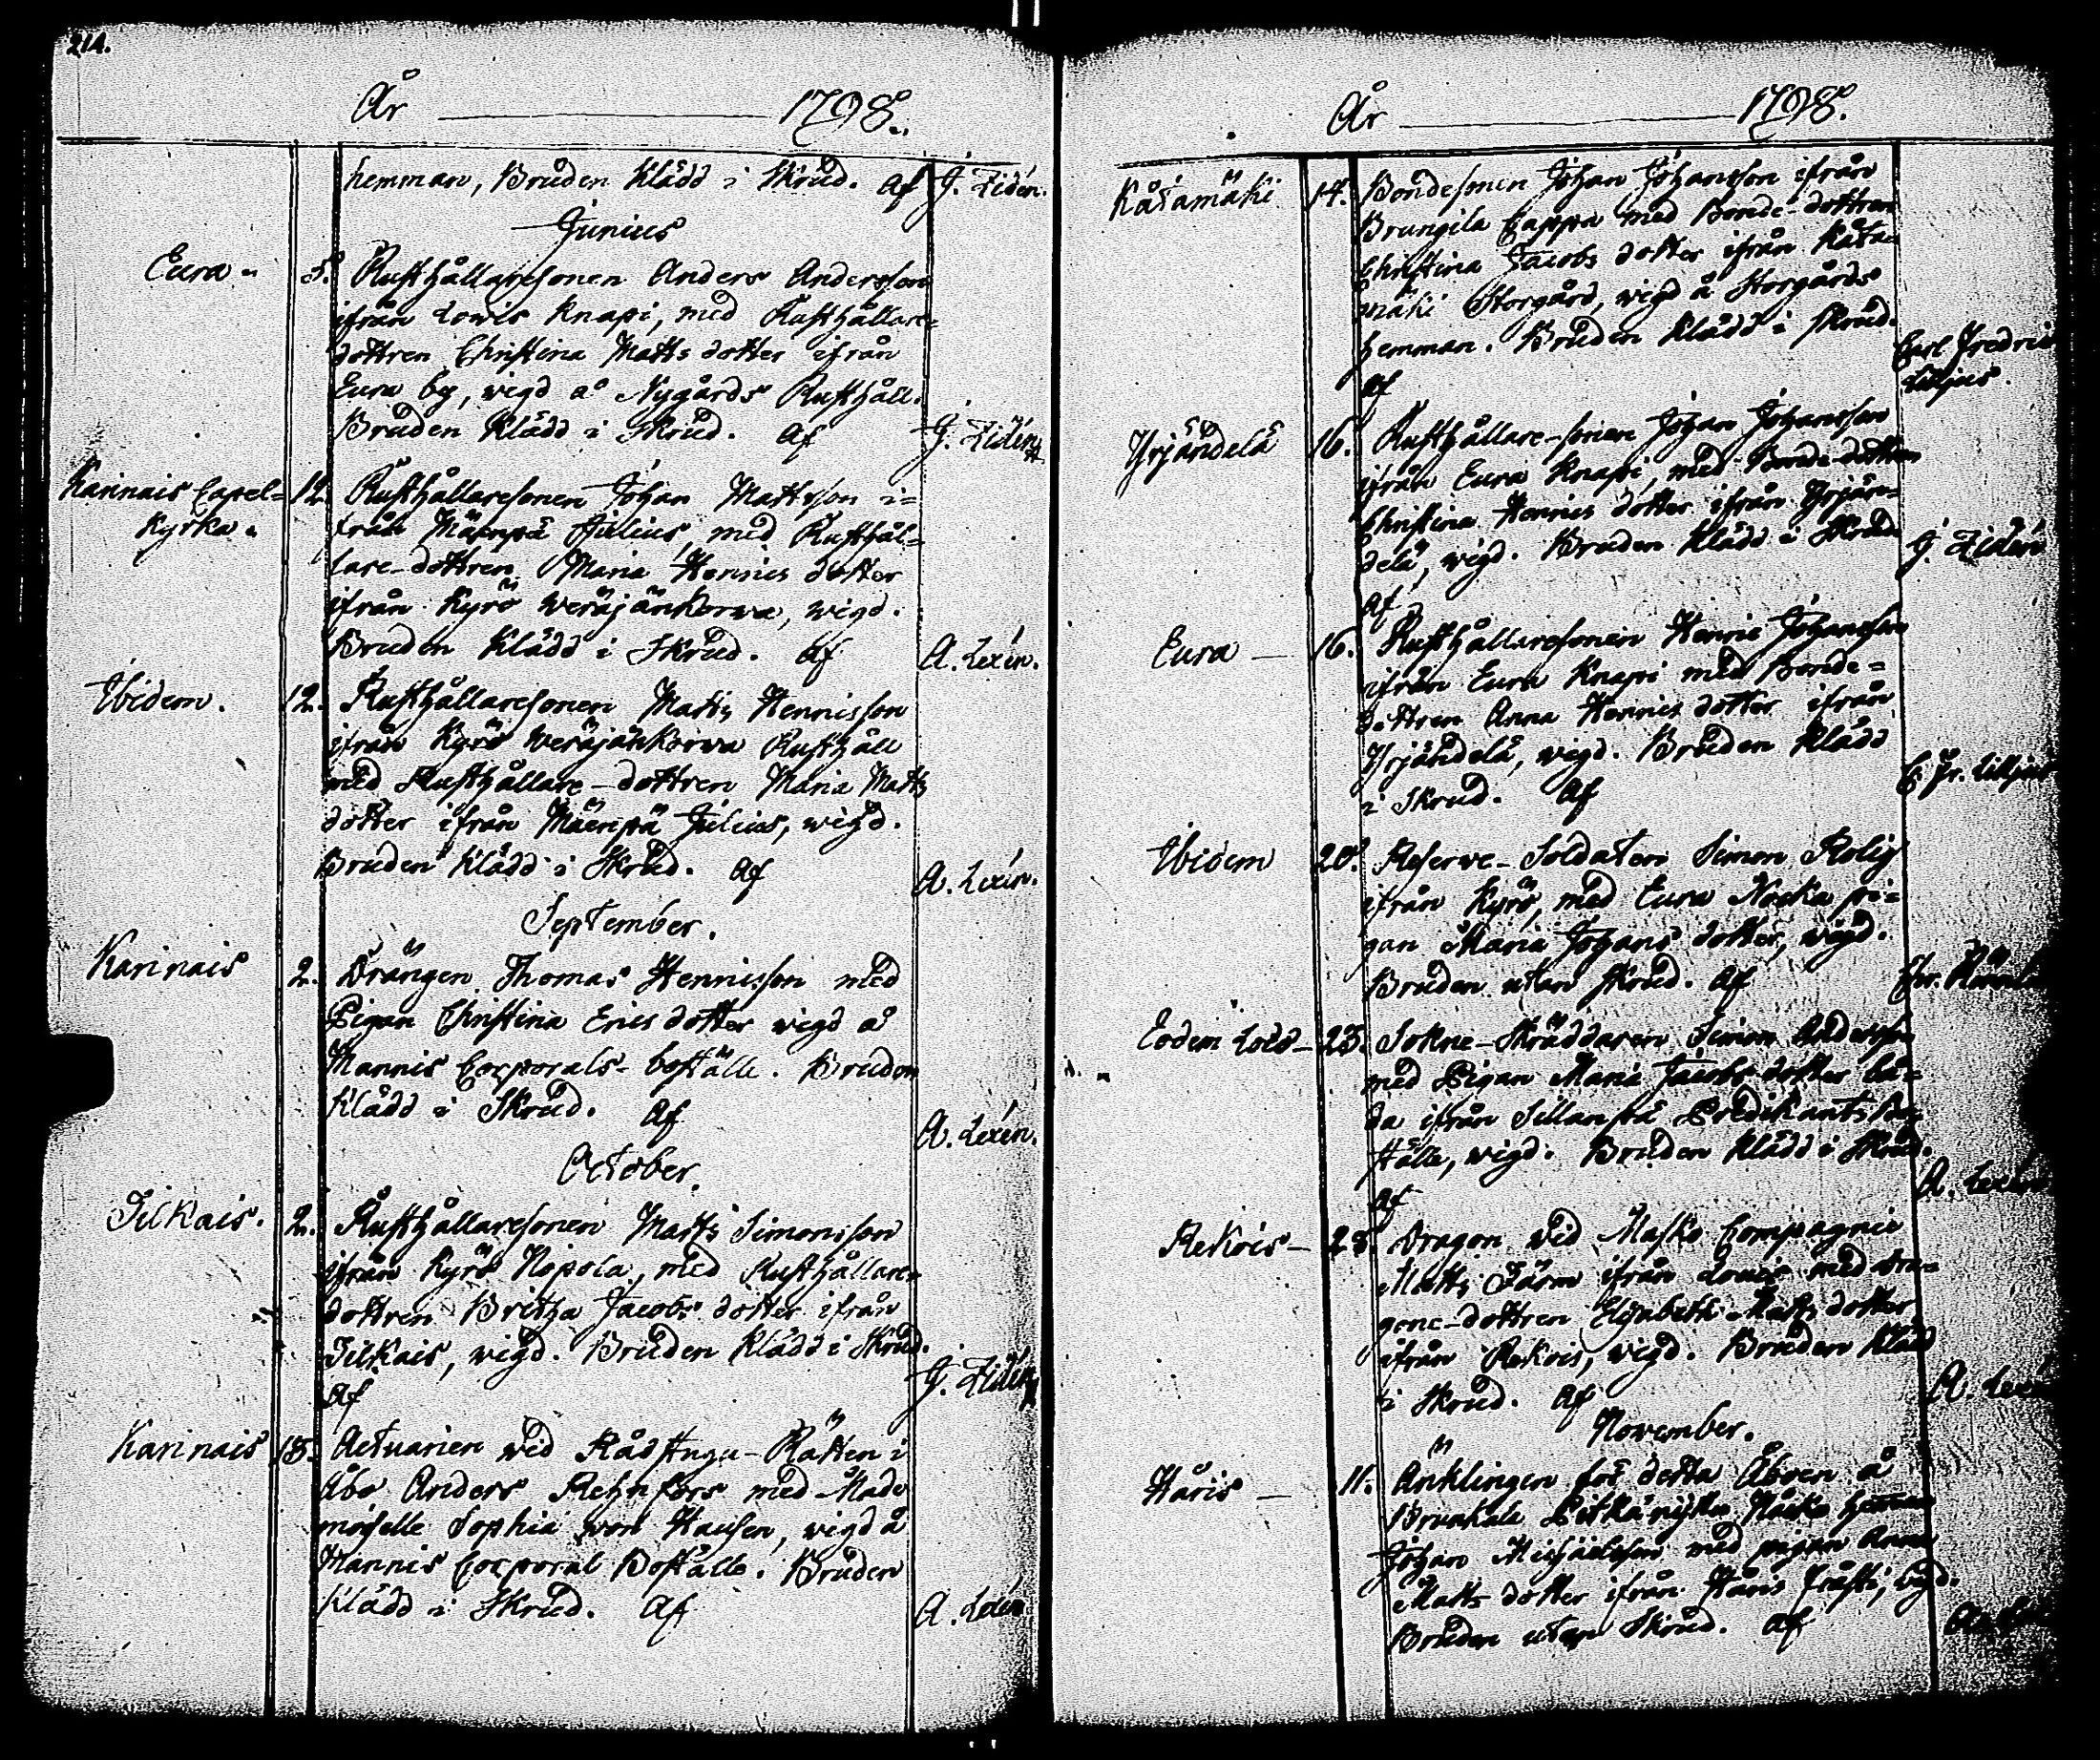 214.
År 1798.
hemman, Bruden Klädd i Skrud. af J. Zidén.
Junius
Eura 5. Rusthållaresonen Anders Andersson
ifrån Lowis Knapi, med Rusthållare-
dottren Christina Matts dotter ifrån
Eura by, wigd å Nygårds Rusthåll.
Bruden Klädd i Skrud. af J. Zidén
Karinais Capel- 12. Rusthållaresonen Johan Mattsson i-
Kyrka. från Mäenpä Julius, med Rusthål-
lare-dottren Maria Hennics dotter
ifrån Kyrö Weräjänkorwa, wigd.
Bruden Klädd i Skrud. af A. Lexén.
Ibidem. 12. Rusthållaresonen Matts Hennisson
ifrån Kyrö Weräjänkorwa Rusthåll
med Rusthållare-dottren Maria Matts
dotter ifrån Mäenpä Julius, wigd.
Bruden Klädd i Skrud. af A. Lexén.
September.
Karinais 2. Drängen Thomas Hennisson med
Pigan Christina Erics dotter wigd å
Mannis Corporals-boställe. Bruden
Klädd i Skrud. af A. Lexén.
October.
Tilkais. 2. Rusthållaresonen Matts Simonsson
ifrån Kyrö Nopola, med Rusthållare
dottren Britha Jacobs dotter ifrån
Tilkais, wigd. Bruden Klädd i Skrud.
af J. Zidén
Karinais 15. Actuarien wid Rådstugu-Rätten i
Åbo Anders Rehnfors med Made
moiselle Sophia von Hausen, wigd å
Mannis Corporal Boställe. Bruden
Klädd i Skrud. af A. Lexén
År 1798.
Kåtamäki 14. Bondesonen Johan Johansson ifrån
Brungila Cappa med Bonde-dottren
Christina Jacobs dotter ifrån Kåta-
mäki Storgård, wigd å Storgårds
hemman. Bruden Klädd i Skrud.
af Carl Fredric
Lilljus.
Yrjändelä 16. Rusthållare-sonen Johan Johansson
ifrån Eura Knapi, med Bonde-dottren
Christina Hennics dotter ifrån Yrjän-
delä, wigd. Bruden Klädd i Skrud
af J. Zidén
Eura 16. Rusthållaresonen Henric Johansson
ifrån Eura Knapi med Bonde-
dottren Anna Hennics dotter ifrån
Yrjändelä, wigd. Bruden Klädd
i Skrud. af C. Fr. Lilljus
Ibidem 20. Reserve-Soldaten Simon Rolig
ifrån Kyrö, med Eura Noska pi-
gan Maria Johans dotter, wigd.
Bruden utan Skrud. af
Eodem Loco 23. Sokne-Skräddaren Simon Andersson
med Pigan Maria Jacobs dotter bå-
da ifrån Sillanpä Predikants bo-
ställe, wigd. Bruden Klädd i Skrud.
af A. Lexén
Rekois 28. Dragon wid Masko Compagnie
Matts Järn ifrån Lowis med Dra-
gone-dottren Elisabeth Matts dotter
ifrån Rekois, wigd. Bruden Klädd
i Skrud. af A. Lexén
November.
Haris 11. Änklingen för detta Åboen å
Brunkala hemman
Johan Michaelsson med pigan Anna
Matts dotter ifrån wigd.
Bruden utan Skrud. af